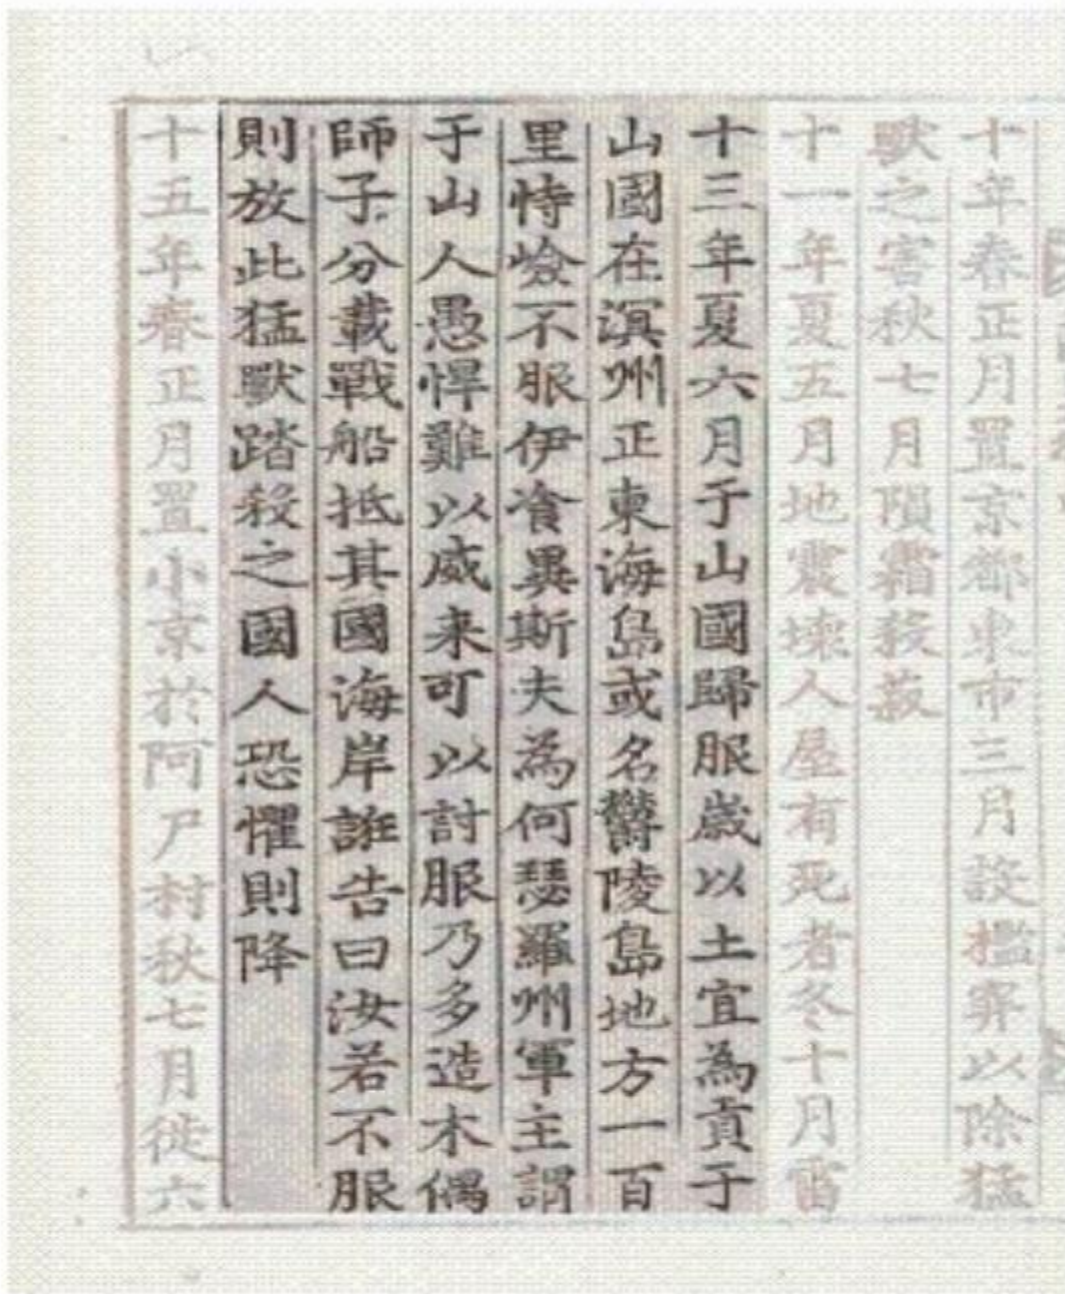 十年春正月置京都東市三月設檻穽以除猛
獸之害秋七月隕霜殺菽
十一年夏五月地震壞人屋有死者冬十月雷
十三年夏六月于山國歸服歲以土宜為貢于
山國在溟州正東海島或名欝陵島地方一百
里恃嶮不服伊飡異斯夫為何瑟羅州軍主謂
于山人愚悍難以威来可以討服乃多造木偶
師子分載戰船抵其國海岸誑告曰汝若不服
則放此猛獸踏殺之國人恐懼則降
十五年春正月置小京於阿尸村秋七月徙六